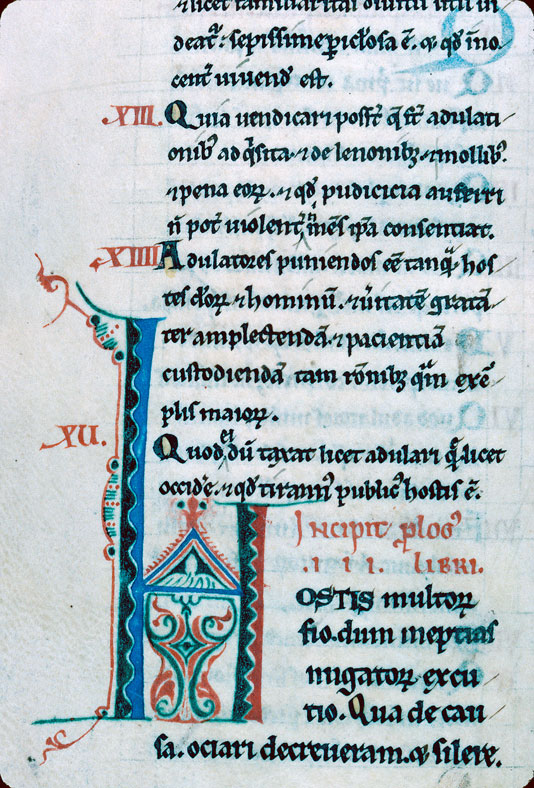 & licet familiaritas diuitu
deatꝰ: sepissime ꝑiclosa ē. & qd̄ ino
centꝰ uiuend' est.
XIII. Quia uendicari posst̄ q̄ st̄ adulati
onibꝰ adq̄sita. & de lenonibꝫ. & mollibꝰ.
& pena eoꝝ. & qd̄ pudicicia auferri
n̄ pot' uiolent' n̄ mēs ip̄a consentiat.
XIIII Adulatores puniendos eē tanq̄ hos
tes d'oꝝ & hominū. & ūitatē gratāt
ter amplectendā. & pacientiā
custodiendā tam rōnibꝫ q̄m exē
plis maioꝝ.
XU. Quod et dū taxat licet adulari q̄ licet
occid'e. & qd̄ tirannꝰ publicꝰ hostis ē.
Incipit ꝓlogꝰ
.III. LIBRI.
HOSTIS multoꝝ
fio. dum ineptias
nugatoꝝ excu
tio. Qua de cau
sa. ociari decreueram. & silere.